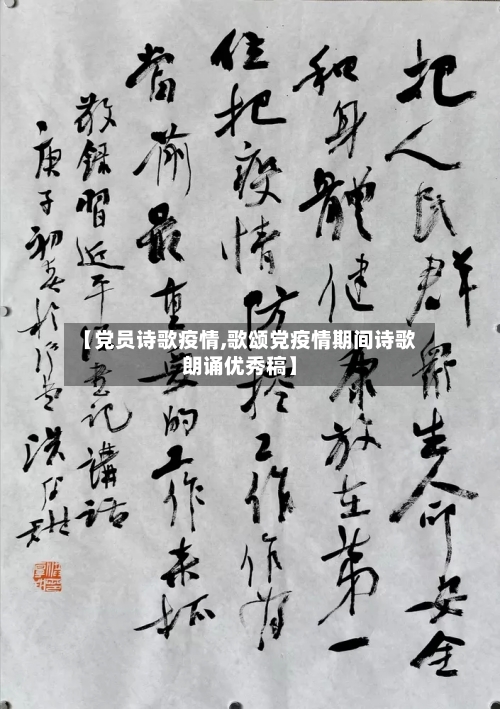 把人民群衆生命安全
和身體健康放在第一
位把疫情防控工作作为
當前最重要的工作来抓
敬録習近平总書記講話
庚子初春於
【党员诗歌疫情,歌颂党疫情期间诗歌
朗诵优秀稿】